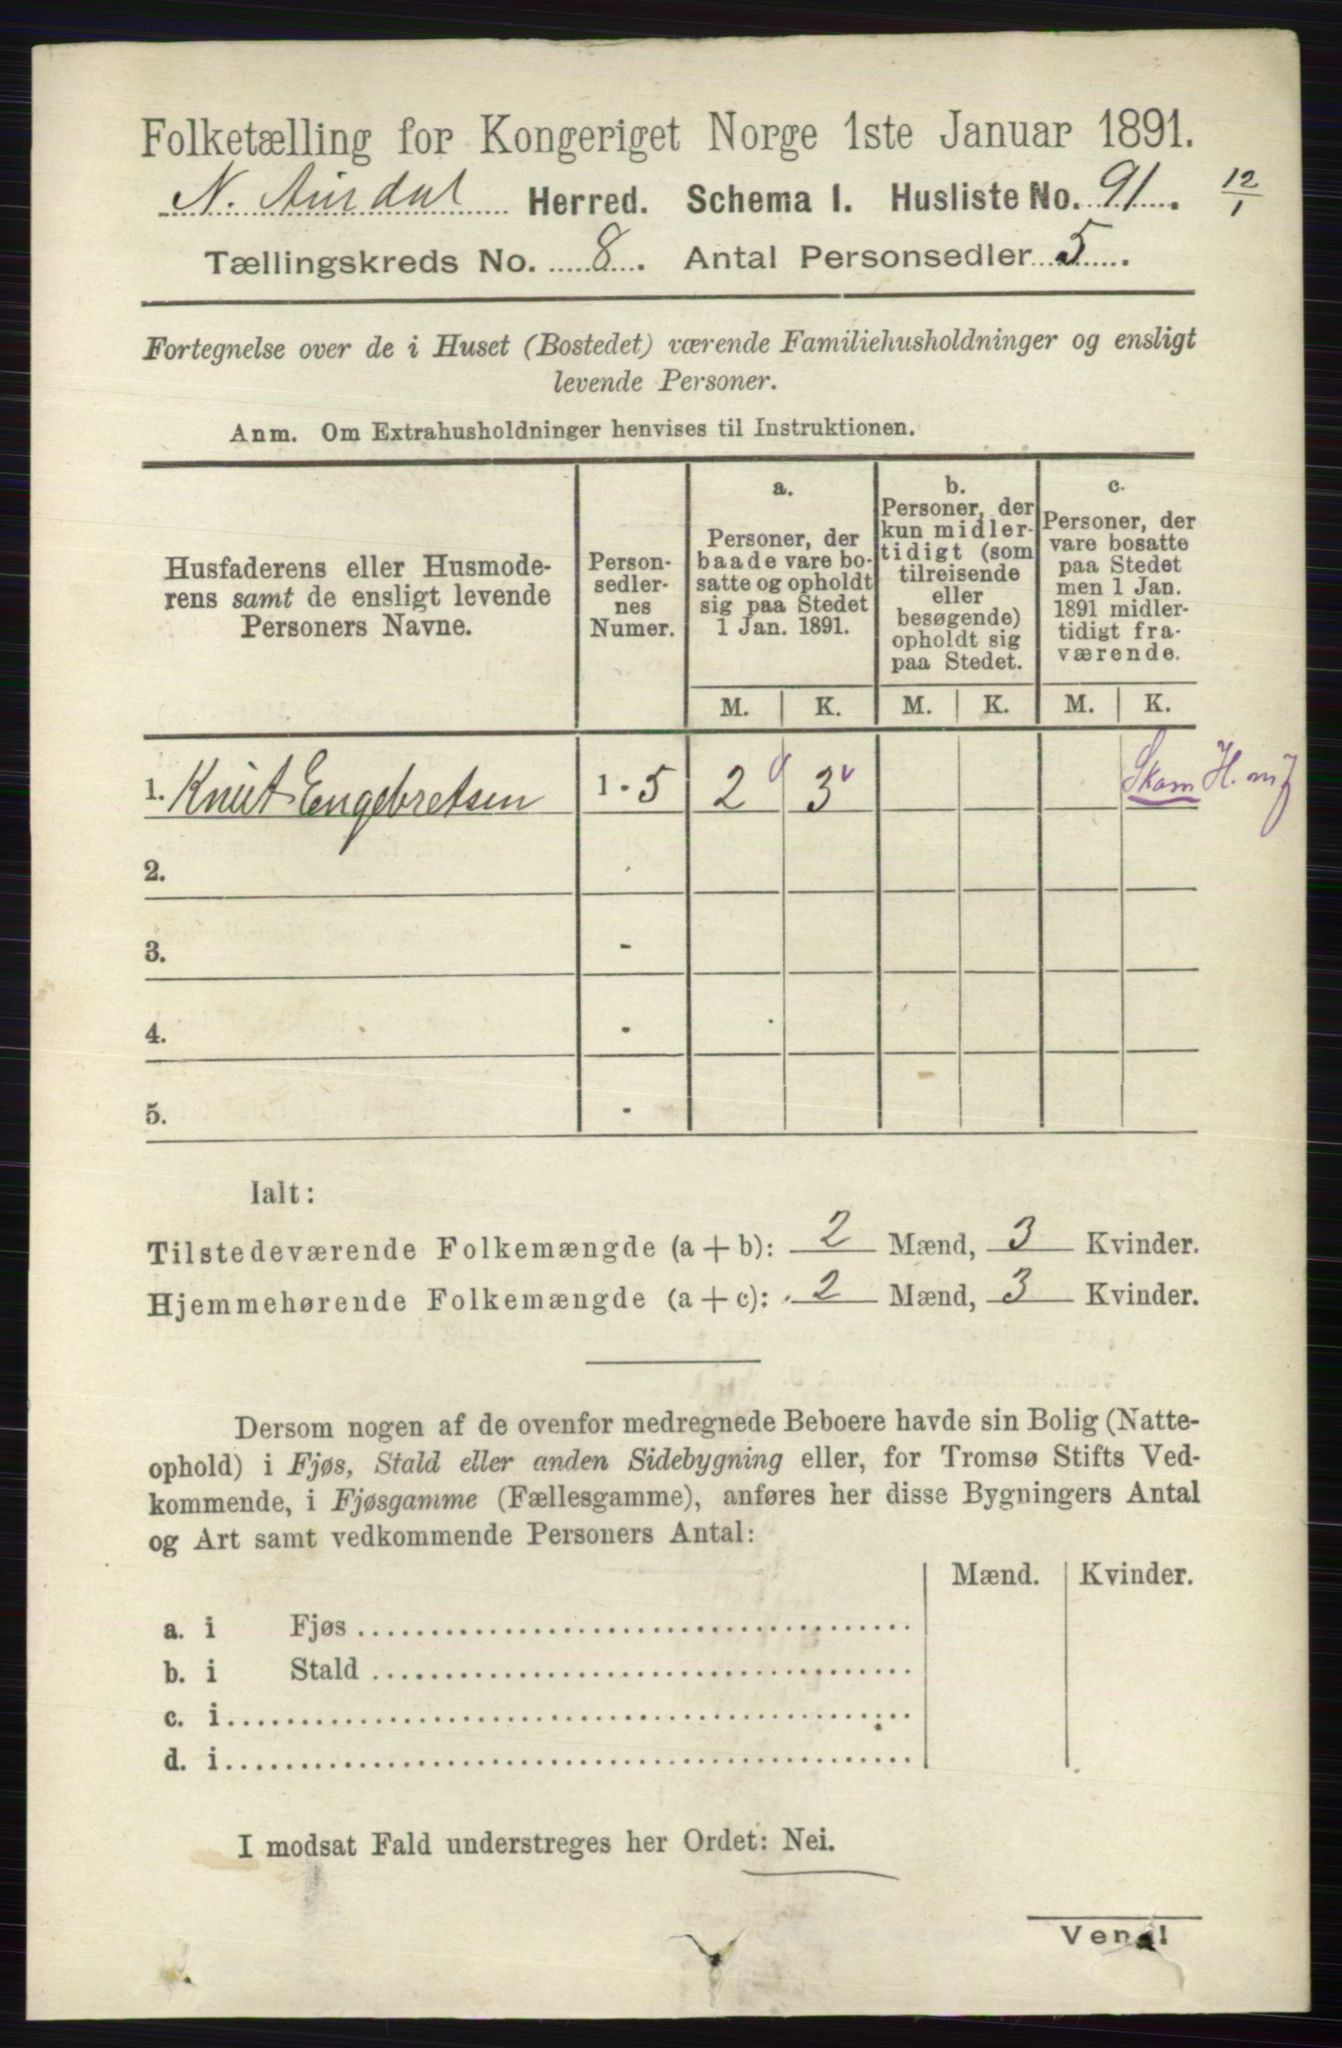 Folketælling for Kongeriget Norge 1ste Januar 1891.
N. Aurdal Herred. Schema I. Husliste No. 91. 12/1
Tællingskreds No. 8. Antal Personsedler 5.
Fortegnelse over de i Huset (Bostedet) værende Familiehusholdninger og ensligt
levende Personer.
Anm. Om Extrahusholdninger henvises til Instruktionen.
Husfaderens eller Husmode-
rens samt de ensligt levende
Personers Navne.
Person-
sedler-
nes
Numer.
a.
Personer, der
baade vare bo-
satte og opholdt
sig paa Stedet
1 Jan. 1891.
b.
Personer, der
kun midler-
tidigt (som
tilreisende
eller
besøgende)
opholdt sig
paa Stedet.
c.
Personer, der
vare bosatte
paa Stedet
men 1 Jan.
1891 midler-
tidigt fra-
værende.
M. K. M. K. M. K.
1. Knut Engebretsen 1 - 5 2 3 Skam H. m
2.
3. -
4. -
5. -
Ialt:
Tilstedeværende Folkemængde (a + b): 2 Mænd, 3 Kvinder.
Hjemmehørende Folkemængde (a + c): 2 Mænd, 3 Kvinder.
Dersom nogen af de ovenfor medregnede Beboere havde sin Bolig (Natte-
ophold) i Fjøs, Stald eller anden Sidebygning eller, for Tromsø Stifts Ved-
kommende, i Fjøsgamme (Fællesgamme), anføres her disse Bygningers Antal
og Art samt vedkommende Personers Antal:
Mænd. Kvinder.
a. i Fjøs
b. i Stald
c. i
d. i
I modsat Fald understreges her Ordet: Nei.
Vend!